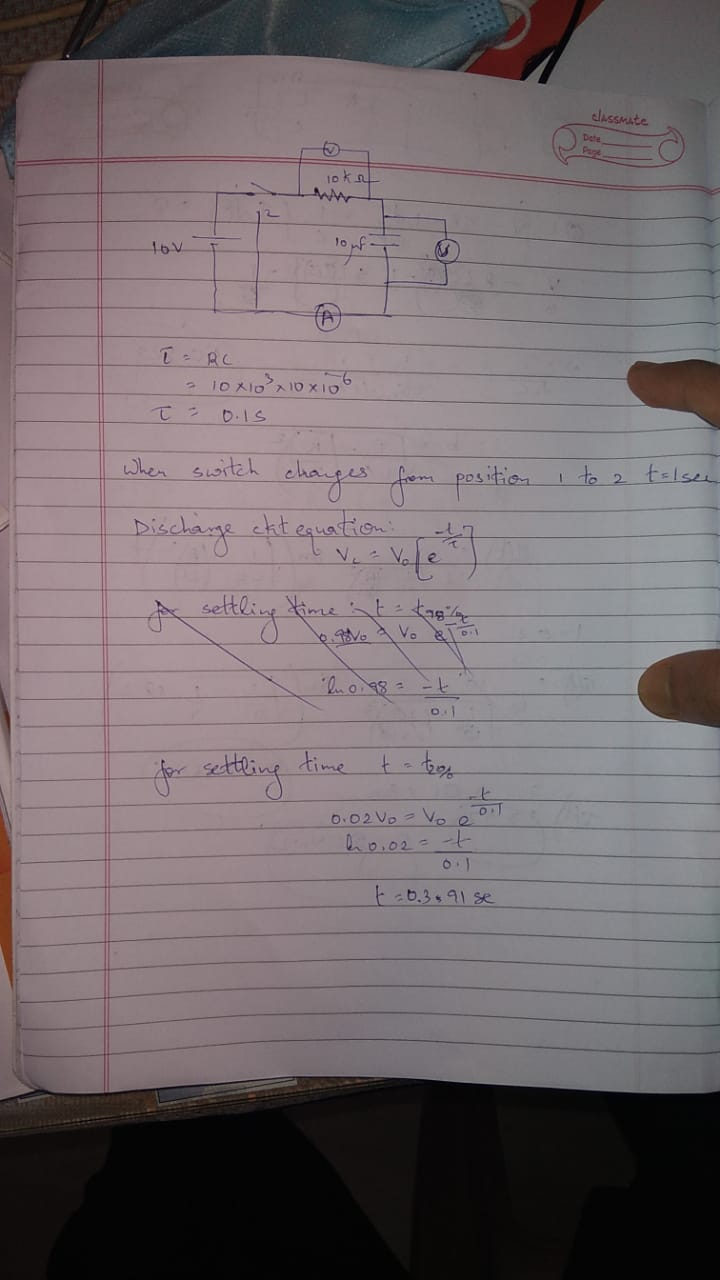 classmate
Date
Page
V
10kΩ
2
10V
10μf
V
A
τ = RC
= 10×10³×10×10⁻⁶
τ = 0.1s
When switch changes from position 1 to 2 t=1sec
Discharge ckt equation:
Vc = V₀[e^(-t/τ)]
for settling time : t = t98%
0.98V₀ = V₀ e^(-t/0.1)
ln 0.98 = -t/0.1
for settling time t = t2%
0.02V₀ = V₀ e^(-t/0.1)
ln 0.02 = -t/0.1
t = 0.391 se